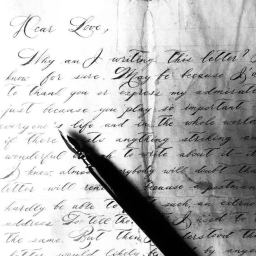 Dear Love,
Why am I writing this letter? I
know for sure. May be because I'd
to thank you or express my admirati
just because you play so important
everyone's life and in the whole world
if there is anything striking a
wonderful to write about it
I know almost everybody will doubt th
letter will rea because
hardly be able to such an extrao
address. Do tell th I used to
the same. But then I understood th
letter would likely be by ange